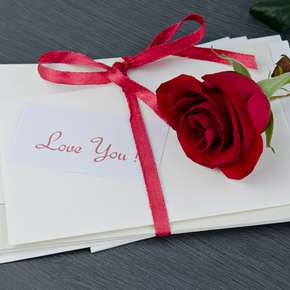 Love You !